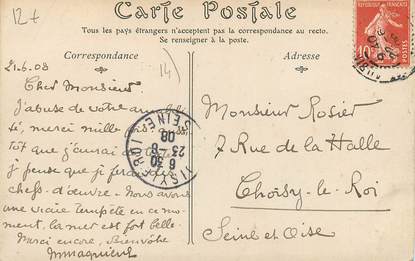 12+
Carte Postale
Tous les pays étrangers n'acceptent pas la correspondance au recto.
Se renseigner à la poste.
Correspondance
Adresse
14)
21.6.08
Cher Monsieur
J'abuse de votre
si, merci mille
tôt que j'aurai
je pense que je ferai des
chefs-d'œuvre. Nous avons
une vraie tempête en ce mo-
ment, la mer est fort belle.
Merci encore, bien vôtre
Monsieur Rosier
7 Rue de la Halle
Choisy-le-Roi
Seine et Oise
CHOISY-LE-ROI
SEINE
6 30
23-6
08
10